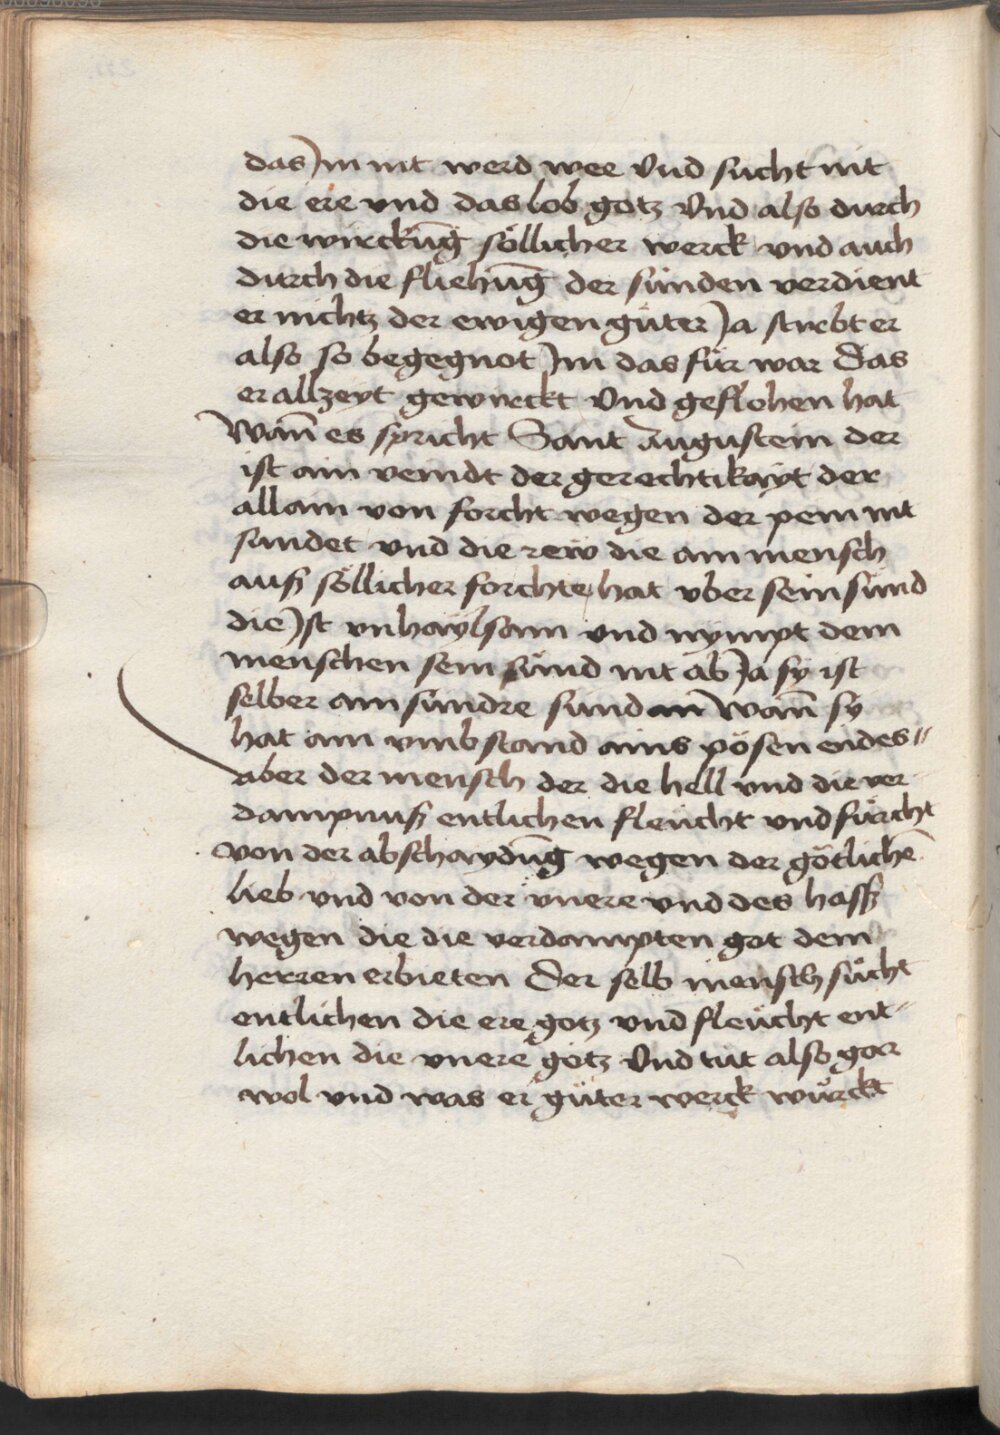 das Jm nit werd wee Und sucht nit
die ere vnd das lob gotz Vnd also durch
die wirckūg söllicher werck vnd auch
durch die fliehūg der sünden verdient
er nichtz der ewigen güter Ja strebt er
also so begegnot Jm das für war Das
er allzeyt gewirckt Vnd geflohen hat
Wañ es spricht Sant Augustein der
ist ain veindt der gerechtikayt der
allain von forcht wegen der pein nit
sündet vnd die rew die ain mensch
auß söllicher forchte hat vber sein sünd
die Jst vnhaylsam vnd nympt dem
menschen sein sünd nit ab Ja sy ist
selber ain sundre sünd Wañ sy
hat ain vmbstand ains pösen endes
aber der mensch der die hell vnd die ver
dampnuß entlichen fleücht vnd fürcht
von der abschaydūg wegen der götlichē
lieb vnd von der vnere vnd des hass
wegen die die verdampten got dem
herren erbieten Der selb mensch sücht
entlichen die ere gotz vnd fleücht ent
lichen die vnere gotz Vnd tut also gar
wol vnd was er güter werck würckt